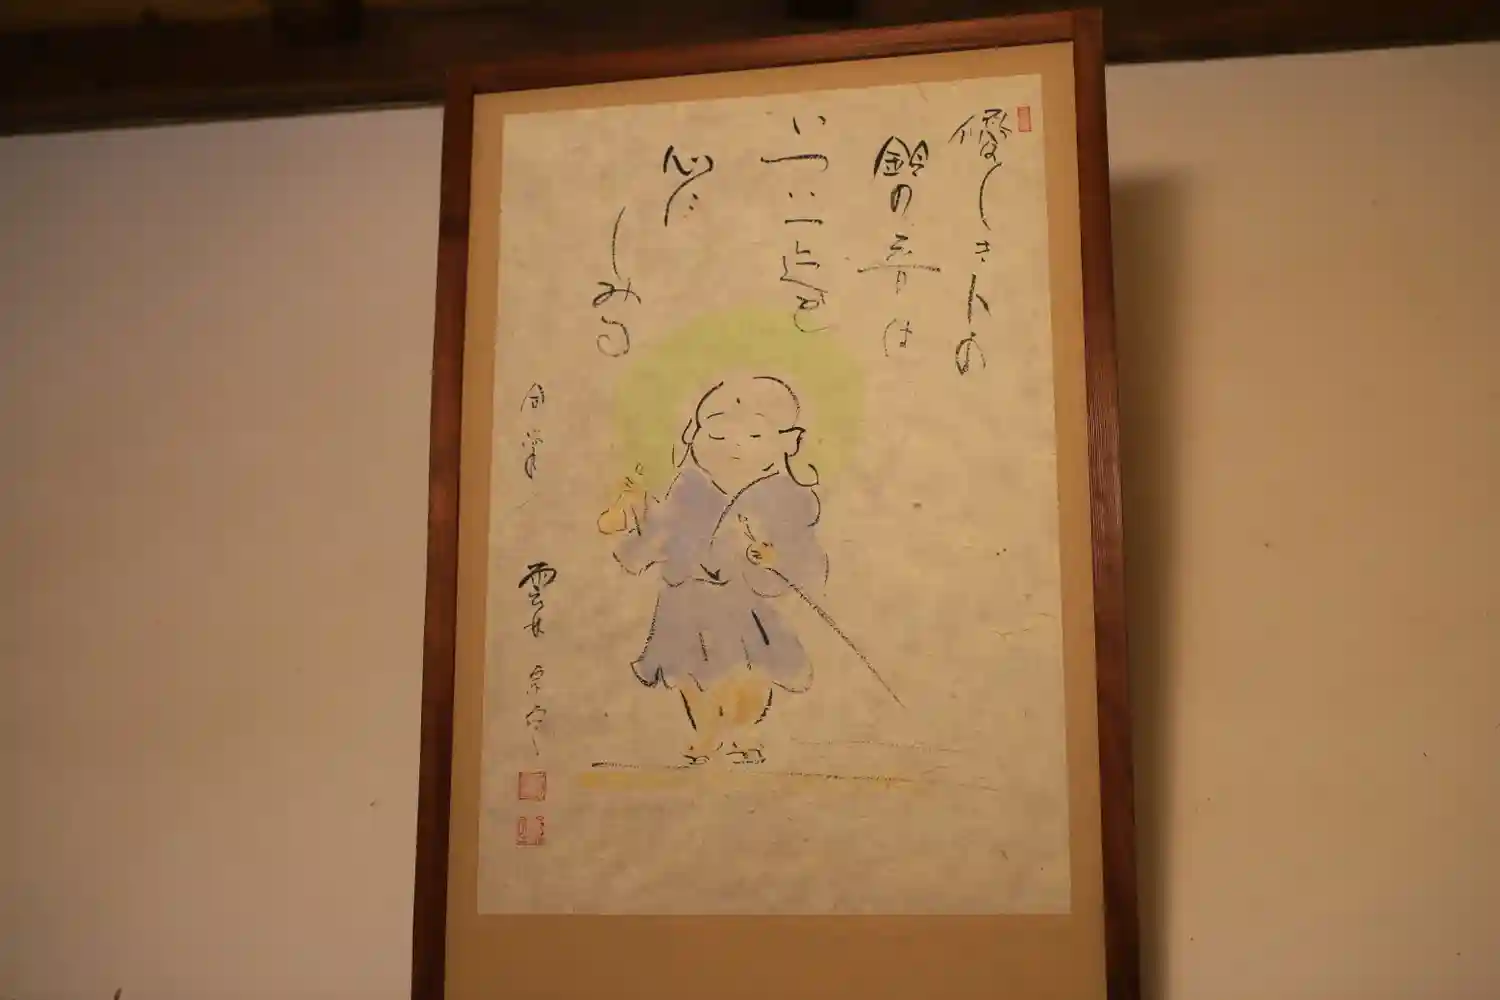 優しき人の
鈴の音は
いついつ迄も
心に
しみる
合掌
雲井